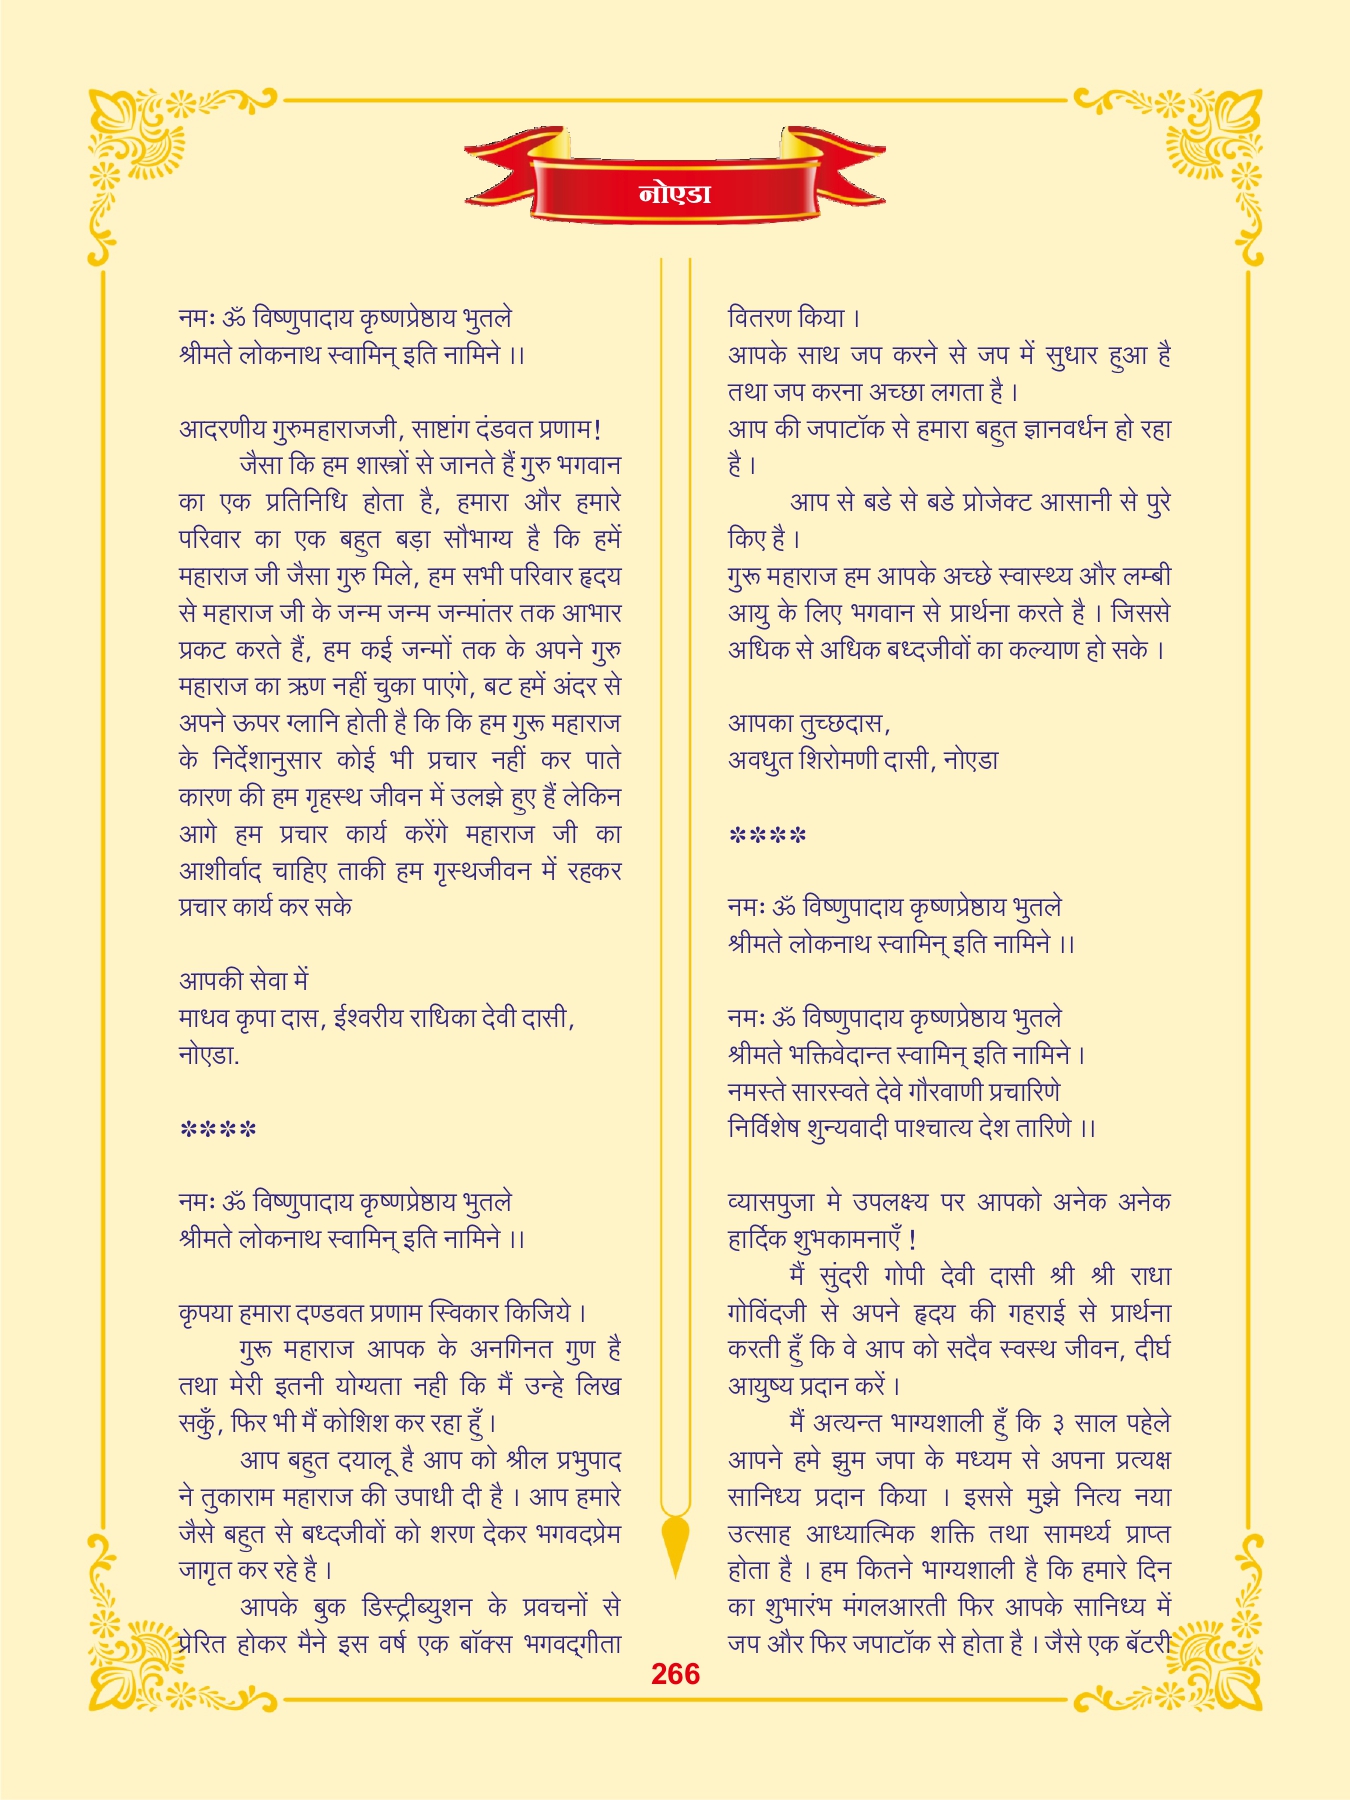 नोएडा
नमः ॐ विष्णुपादाय कृष्णप्रेष्ठाय भुतले
श्रीमते लोकनाथ स्वामिन् इति नामिने ।।
आदरणीय गुरुमहाराजजी, साष्टांग दंडवत प्रणाम!
जैसा कि हम शास्त्रों से जानते हैं गुरु भगवान
का एक प्रतिनिधि होता है, हमारा और हमारे
परिवार का एक बहुत बड़ा सौभाग्य है कि हमें
महाराज जी जैसा गुरु मिले, हम सभी परिवार हृदय
से महाराज जी के जन्म जन्म जन्मांतर तक आभार
प्रकट करते हैं, हम कई जन्मों तक के अपने गुरु
महाराज का ऋण नहीं चुका पाएंगे, बट हमें अंदर से
अपने ऊपर ग्लानि होती है कि कि हम गुरू महाराज
के निर्देशानुसार कोई भी प्रचार नहीं कर पाते
कारण की हम गृहस्थ जीवन में उलझे हुए हैं लेकिन
आगे हम प्रचार कार्य करेंगे महाराज जी का
आशीर्वाद चाहिए ताकी हम गृस्थजीवन में रहकर
प्रचार कार्य कर सके
आपकी सेवा में
माधव कृपा दास, ईश्वरीय राधिका देवी दासी,
नोएडा.
****
नमः ॐ विष्णुपादाय कृष्णप्रेष्ठाय भुतले
श्रीमते लोकनाथ स्वामिन् इति नामिने ।।
कृपया हमारा दण्डवत प्रणाम स्विकार किजिये ।
गुरू महाराज आपक के अनगिनत गुण है
तथा मेरी इतनी योग्यता नही कि मैं उन्हे लिख
सकुँ, फिर भी मैं कोशिश कर रहा हुँ ।
आप बहुत दयालू है आप को श्रील प्रभुपाद
ने तुकाराम महाराज की उपाधी दी है । आप हमारे
जैसे बहुत से बध्दजीवों को शरण देकर भगवदप्रेम
जागृत कर रहे है ।
आपके बुक डिस्ट्रीब्युशन के प्रवचनों से
प्रेरित होकर मैने इस वर्ष एक बॉक्स भगवद्‌गीता
वितरण किया ।
आपके साथ जप करने से जप में सुधार हुआ है
तथा जप करना अच्छा लगता है ।
आप की जपाटॉक से हमारा बहुत ज्ञानवर्धन हो रहा
है ।
आप से बडे से बडे प्रोजेक्ट आसानी से पुरे
किए है ।
गुरू महाराज हम आपके अच्छे स्वास्थ्य और लम्बी
आयु के लिए भगवान से प्रार्थना करते है । जिससे
अधिक से अधिक बध्दजीवों का कल्याण हो सके ।
आपका तुच्छदास,
अवधुत शिरोमणी दासी, नोएडा
****
नमः ॐ विष्णुपादाय कृष्णप्रेष्ठाय भुतले
श्रीमते लोकनाथ स्वामिन् इति नामिने ।।
नमः ॐ विष्णुपादाय कृष्णप्रेष्ठाय भुतले
श्रीमते भक्तिवेदान्त स्वामिन् इति नामिने ।
नमस्ते सारस्वते देवे गौरवाणी प्रचारिणे
निर्विशेष शुन्यवादी पाश्चात्य देश तारिणे ।।
व्यासपुजा मे उपलक्ष्य पर आपको अनेक अनेक
हार्दिक शुभकामनाएँ !
मैं सुंदरी गोपी देवी दासी श्री श्री राधा
गोविंदजी से अपने हृदय की गहराई से प्रार्थना
करती हुँ कि वे आप को सदैव स्वस्थ जीवन, दीर्घ
आयुष्य प्रदान करें ।
मैं अत्यन्त भाग्यशाली हुँ कि ३ साल पहेले
आपने हमे झुम जपा के मध्यम से अपना प्रत्यक्ष
सानिध्य प्रदान किया । इससे मुझे नित्य नया
उत्साह आध्यात्मिक शक्ति तथा सामर्थ्य प्राप्त
होता है । हम कितने भाग्यशाली है कि हमारे दिन
का शुभारंभ मंगलआरती फिर आपके सानिध्य में
जप और फिर जपाटॉक से होता है । जैसे एक बॅटरी
266